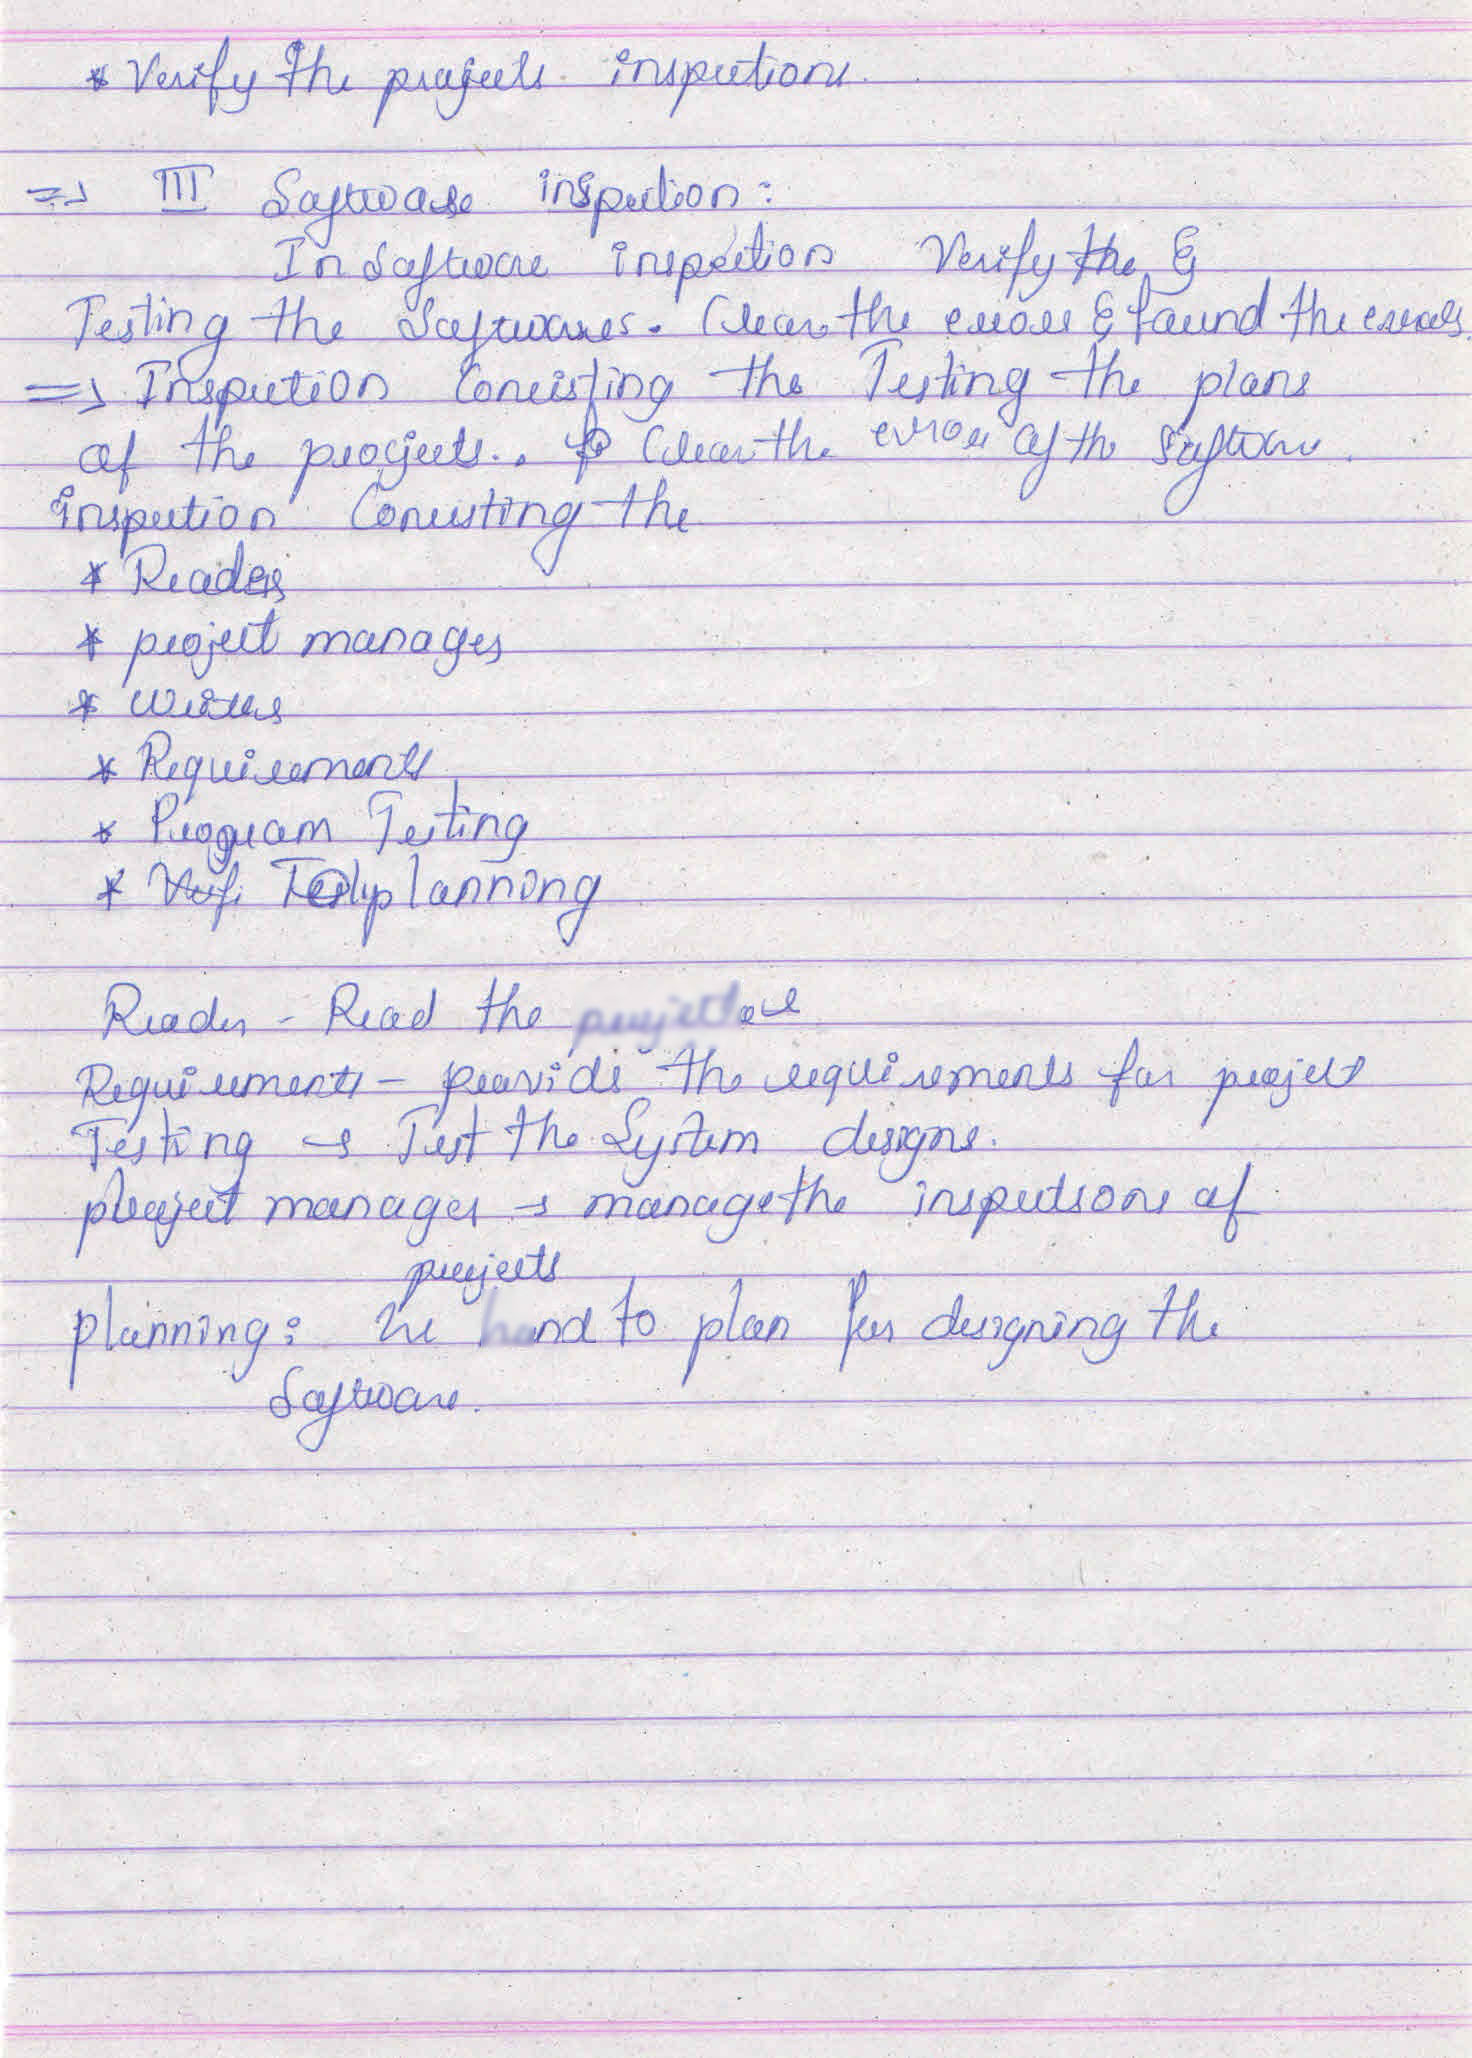 * Verify the projects inspections.
=> III Software inspection:
In Software inspection Verify the &
Testing the Softwares. Clear the errors & found the errors.
=> Inspection Consisting the Testing the plans
of the projects.. Clear the error of the Software.
inspection Consisting the
* Readers
* project manages
* Writers
* Requirements
* Program Testing
* Test planning
Reader - Read the
Requirements - provide the requirements for project
Testing → Test the System designs.
project manager → manage the inspections of
projects
planning: to plan for designing the
Software.